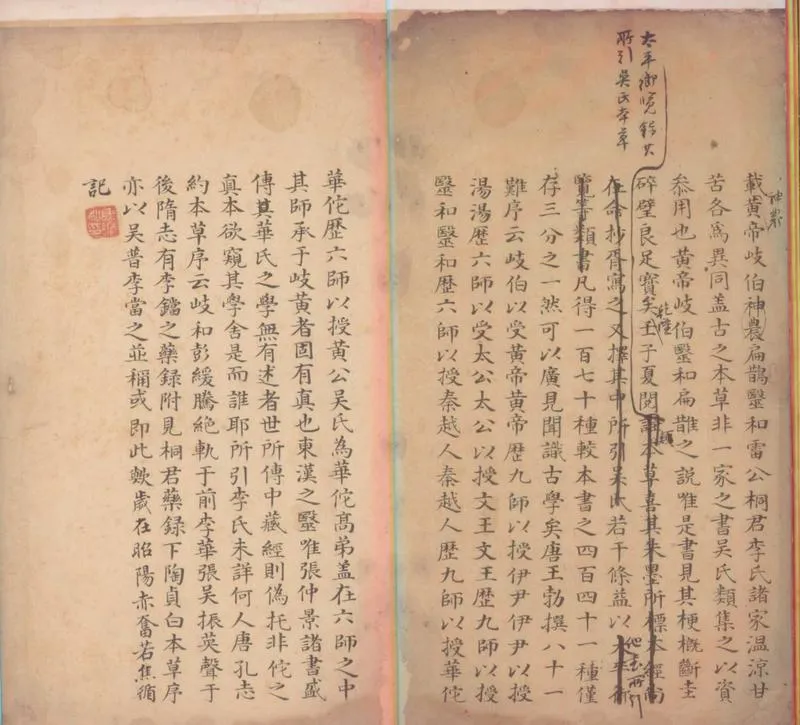 太平御覽
所引吳氏本草
載黃帝岐伯神農扁鵲毉和雷公桐君李氏諸家温涼甘
神農
苦各爲異同盖古之本草非一家之書吳氏類集之以資
叅用也黃帝岐伯毉和扁鵲之説唯是書見其梗概斷圭
碎璧良足寶矣壬子夏閱本草喜其朱墨所標本經尚
乾隆
在命抄胥寫之又擇其中所引吳氏若干條益以太平御
他書所引
覽等類書凡得一百七十種較本書之四百四十一種僅
存三分之一然可以廣見聞識古學矣唐王勃撰八十一
難序云岐伯以受黃帝黃帝歷九師以授伊尹伊尹以授
湯湯歷六師以受太公太公以授文王文王歷九師以授
毉和毉和歷六師以授秦越人秦越人歷九師以授華佗
華佗歷六師以授黃公吳氏為華佗高弟盖在六師之中
其師承于岐黃者固有真也東漢之毉唯張仲景諸書盛
傳其華氏之學無有述者世所傳中藏經則偽托非佗之
真本欲窺其學舍是而誰耶所引李氏未詳何人唐孔志
約本草序云岐和彭緩騰絶軌于前李華張吳振英聲于
後隋志有李鐺之藥録附見桐君藥録下陶貞白本草序
亦以吳普李當之並稱或即此歟歲在昭陽赤奮若焦循
記